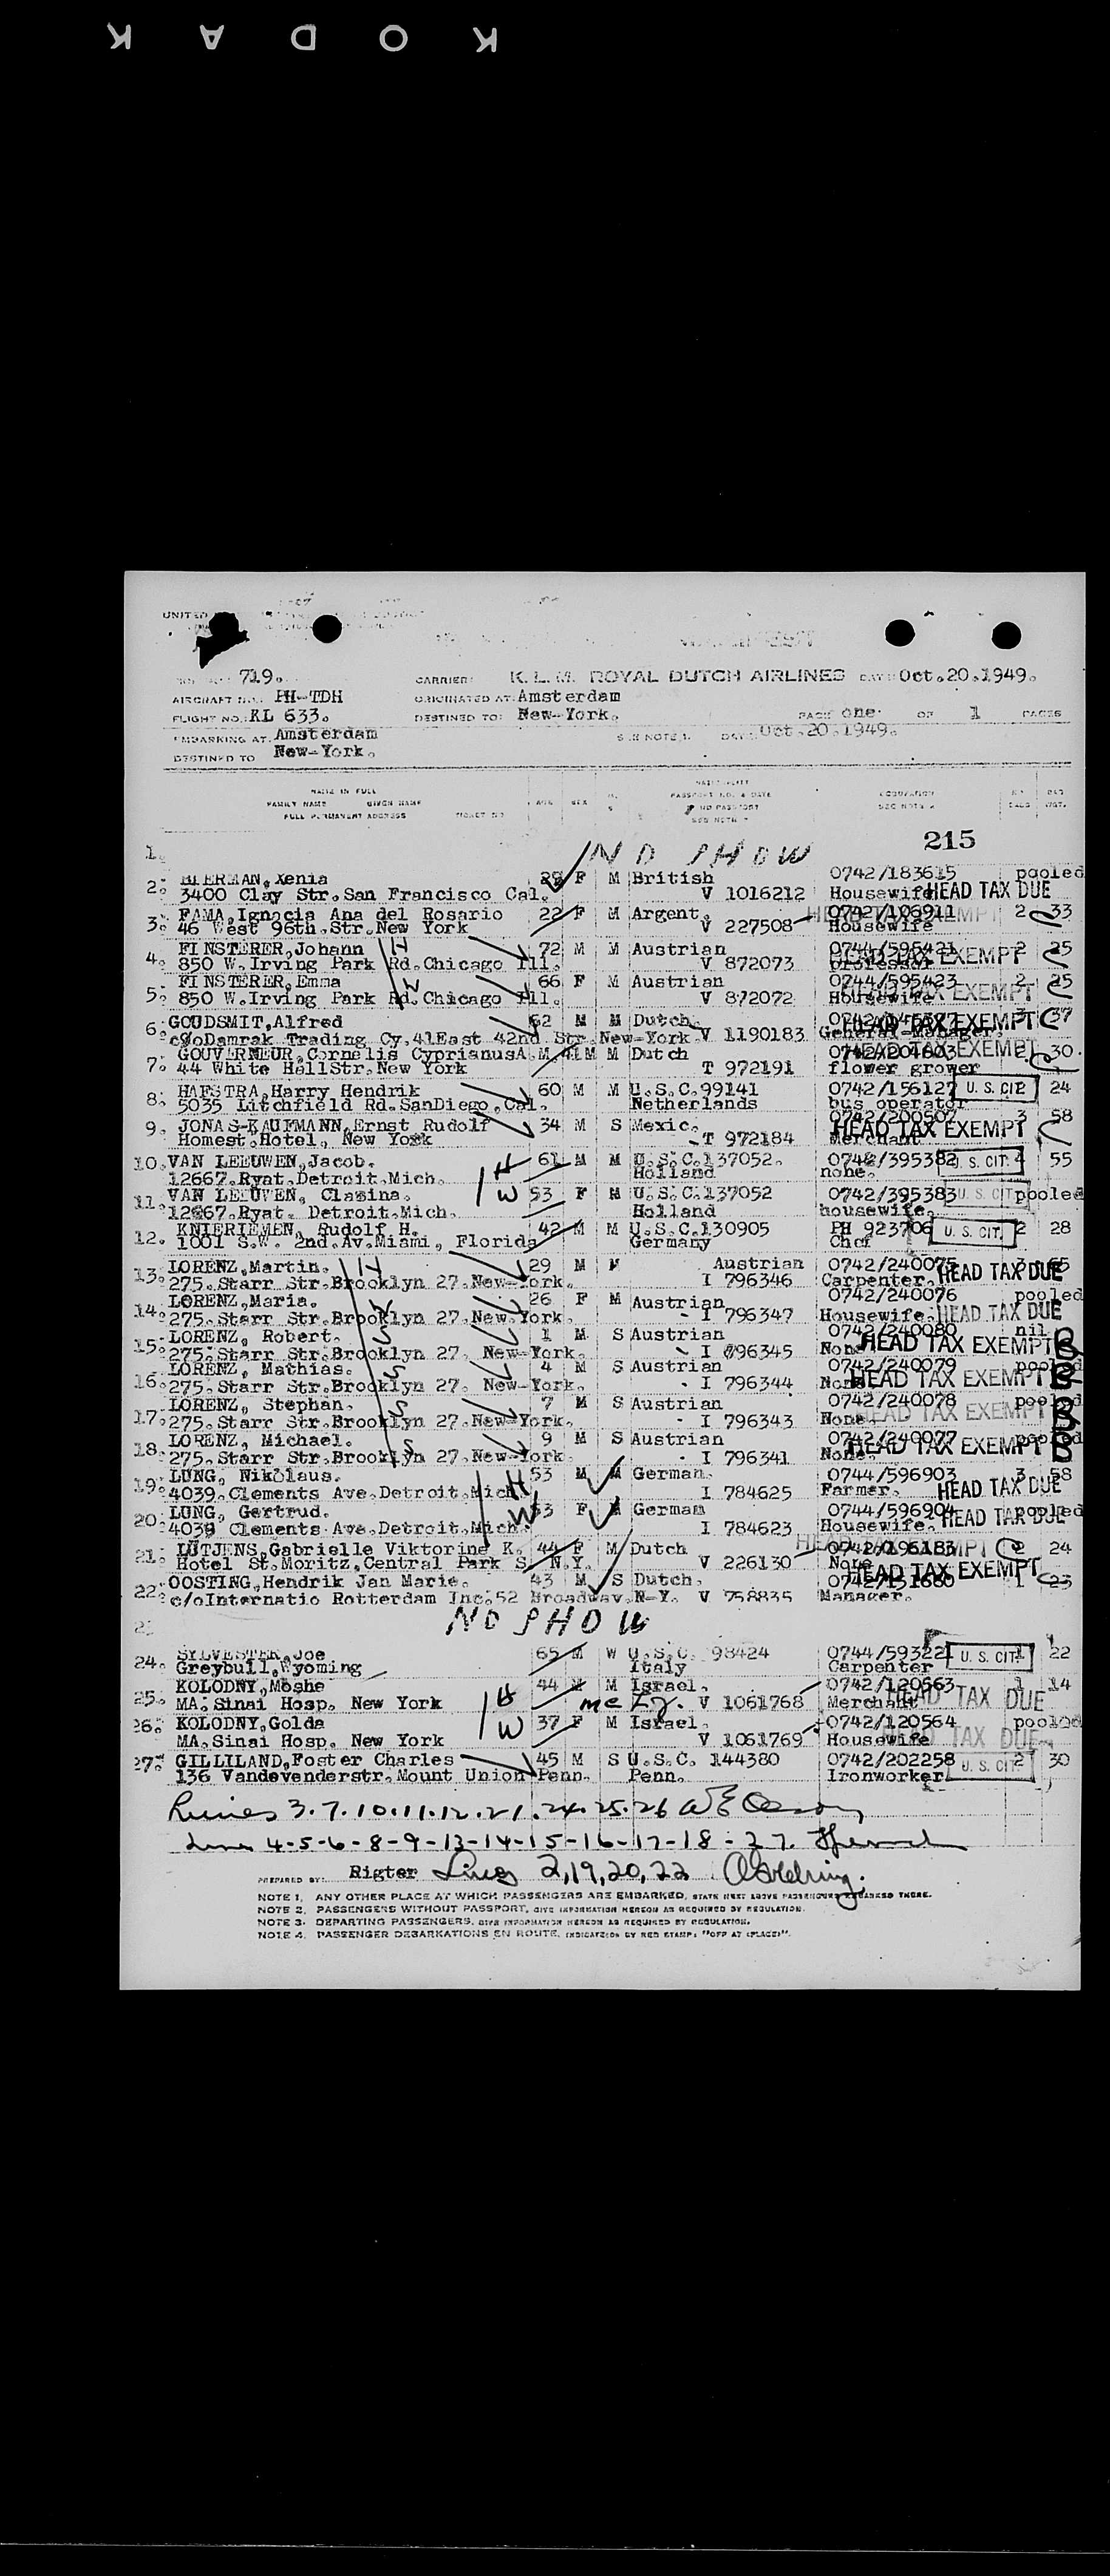 KODAK
UNITED
719.
CARRIER: K.L.M. ROYAL DUTCH AIRLINES DATE: Oct.20.1949.
AIRCRAFT NO. PH-TDH ORIGINATED AT: Amsterdam
FLIGHT NO. KL 633. DESTINED TO: New-York. PAGE one. OF 1 PAGES
EMBARKING AT: Amsterdam SEE NOTE 1. DATE Oct.20.1949.
DESTINED TO New-York.
NAME IN FULL
FAMILY NAME GIVEN NAME AGE SEX PASSPORT NO. & DATE OCCUPATION
FULL PERMANENT ADDRESS TICKET NO NO PASSPORT SEE NOTE 2 BAGS WGT.
215
1. NO SHOW
2. BIERMAN, Xenia F M British 0742/183615 pooled
3400 Clay Str. San Francisco Cal. V 1016212 Housewife HEAD TAX DUE
3. FAMA, Ignacia Ana del Rosario 22 F M Argent. 0742/106911 2 33
46 West 96th. Str. New York V 227508 Housewife
4. FINSTERER, Johann H 72 M M Austrian 0744/595421 2 25
850 W. Irving Park Rd. Chicago Ill. V 872073 professor HEAD TAX EXEMPT
5. FINSTERER, Emma W 66 F M Austrian 0744/595423 2 25
850 W. Irving Park Rd. Chicago Ill. V 872072 Housewife HEAD TAX EXEMPT
6. GOUDSMIT, Alfred 62 M M Dutch 3 37
c/o Damrak Trading Cy. 41 East 42nd Str. New-York. V 1190183 General-Manager. HEAD TAX EXEMPT
7. GOUVERNEUR, Cornelis Cyprianus A. M. 41 M M Dutch 0742/204603 2 30.
44 White Hall Str. New York T 972191 flower grower HEAD TAX EXEMPT
8. HAFSTRA, Harry Hendrik 60 M M U.S.C. 99141 0742/156127 U. S. CIT. 2 24
5035 Litchfield Rd. SanDiego, Cal. Netherlands bus operator
9. JONAS-KAUFMANN, Ernst Rudolf 34 M S Mexic. 0742/200507 3 58
Homest. Hotel, New York T 972184 Merchant HEAD TAX EXEMPT
10. VAN LEEUWEN, Jacob. H 61 M M U.S.C. 137052. 0742/395382 U. S. CIT. 4 55
12667. Ryat. Detroit. Mich. Holland none.
11. VAN LEEUWEN, Clasina. W 53 F M U.S.C. 137052 0742/395383 U. S. CIT. pooled
12667. Ryat. Detroit. Mich. Holland housewife.
12. KNIERIEMEN, Rudolf H. 42 M M U.S.C. 130905 PH 923706 U. S. CIT. 2 28
1001 S.W. 2nd. Av. Miami, Florida Germany Chef
13. LORENZ, Martin. H 29 M M Austrian 0742/240075 65
275. Starr Str. Brooklyn 27. New-York. I 796346 Carpenter. HEAD TAX DUE
14. LORENZ, Maria. W 26 F M Austrian 0742/240076 pooled
275. Starr Str. Brooklyn 27. New York. I 796347 Housewife. HEAD TAX DUE
15. LORENZ, Robert. S 1 M S Austrian 0742/240080 nil
275. Starr Str. Brooklyn 27. New-York. I 796345 None HEAD TAX EXEMPT B
16. LORENZ, Mathias. S 4 M S Austrian 0742/240079 pooled
275. Starr Str. Brooklyn 27. New-York. I 796344 None HEAD TAX EXEMPT B
17. LORENZ, Stephan. S 7 M S Austrian 0742/240078 pooled
275. Starr Str. Brooklyn 27. New-York. I 796343 None HEAD TAX EXEMPT B
18. LORENZ, Michael. S 9 M S Austrian 0742/240077 pooled
275. Starr Str. Brooklyn 27. New-York I 796341 None. HEAD TAX EXEMPT B
19. LUNG, Nikolaus. H 53 M M German. 0744/596903 3 58
4039. Clements Ave. Detroit. Mich. I 784625 Farmer. HEAD TAX DUE
20. LUNG, Gertrud. W 53 F M German 0744/596904 pooled
4039 Clements Ave. Detroit. Mich. I 784623 Housewife. HEAD TAX DUE
21. LÜTJENS, Gabrielle Viktorine K. 44 F M Dutch 0742/196183 2 24
Hotel St. Moritz. Central Park S. N.Y. V 226130 None
22. OOSTING, Hendrik Jan Marie. 43 M S Dutch. 0742/151680 1 23
c/o Internatio Rotterdam Inc. 52 Broadway. N-Y. V 758835 Manager. HEAD TAX EXEMPT
NO SHOW
24. SYLVESTER, Joe 65 M W U.S.C. 98424 0744/593221 U. S. CIT. 1 22
Greybull, Wyoming Italy Carpenter
25. KOLODNY, Moshe H 44 M M Israel. 0742/120563 1 14
MA. Sinai Hosp. New York V 1061768 Merchant HEAD TAX DUE
26. KOLODNY, Golda W 37 F M Israel. 0742/120564 pooled
MA. Sinai Hosp. New York V 1061769 Housewife HEAD TAX DUE
27. GILLILAND, Foster Charles 45 M S U.S.C. 144380 0742/202258 U. S. CIT. 2 30
136 Vandevenderstr. Mount Union Penn. Penn. Ironworker
Lines 3.7.10.11.12.21.24.25.26
Line 4-5-6-8-9-13-14-15-16-17-18-27.
PREPARED BY: Rigter Lines 2,19,20,22
NOTE 1. ANY OTHER PLACE AT WHICH PASSENGERS ARE EMBARKED, STATE NEXT ABOVE PASSENGERS EMBARKED THERE.
NOTE 2. PASSENGERS WITHOUT PASSPORT, GIVE INFORMATION HEREON AS REQUIRED BY REGULATION.
NOTE 3. DEPARTING PASSENGERS, GIVE INFORMATION HEREON AS REQUIRED BY REGULATION.
NOTE 4. PASSENGER DEBARKATIONS EN ROUTE, INDICATE ON BY RED STAMP: "OFF AT (PLACE)".